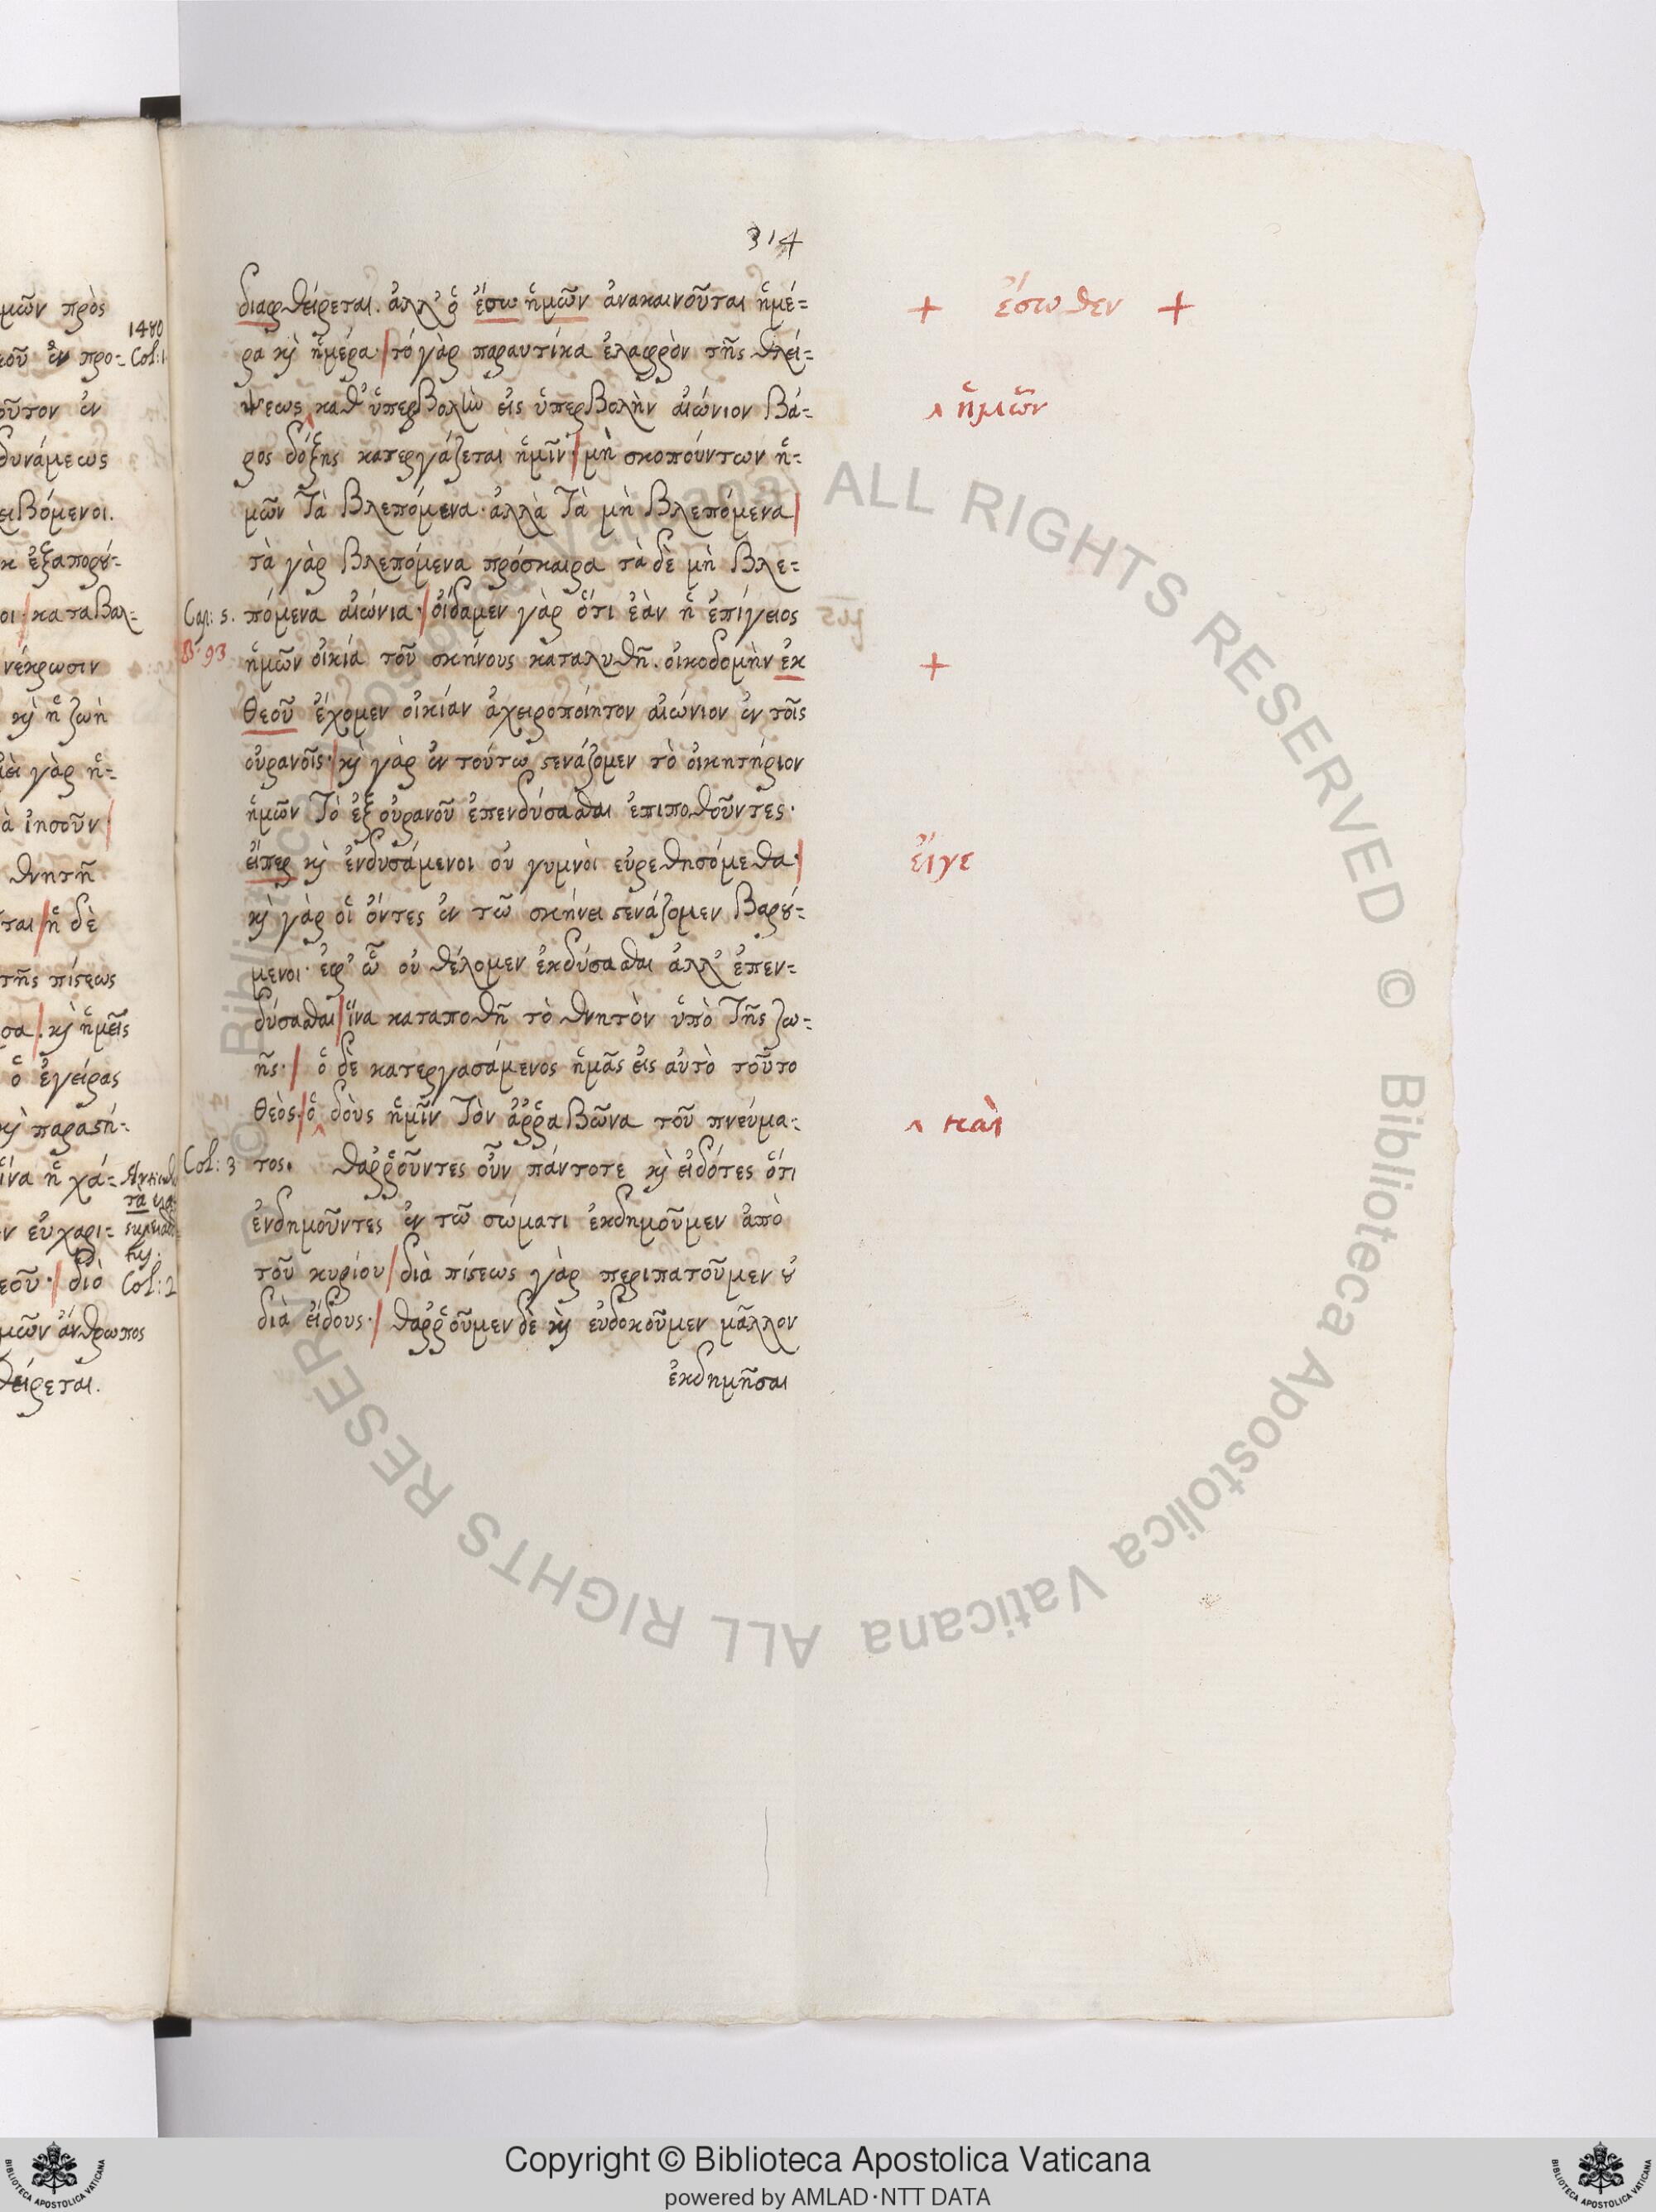 314
διαφθείρεται. ἀλλ' ὁ ἔσω ἡμῶν ἀνακαινοῦται ἡμέ= + ἔσωθεν +
ρα κὶ ἡμέρα· τό γὰρ παραυτίκα ἐλαφρὸν τῆς θλεί=
ψεως καθ' ὑπερβολὴν εἰς ὑπερβολὴν αἰώνιον βά= ‸ ἡμῶν
ρος δόξης κατεργάζεται ἡμῖν· μὴ σκοπούντων ἡ=
μῶν τὰ βλεπόμενα· ἀλλὰ τὰ μὴ βλεπόμενα
τὰ γὰρ βλεπόμενα πρόσκαιρα τὰ δὲ μὴ βλε=
Cap: 5. πόμενα αἰώνια· οἴδαμεν γὰρ ὅτι ἐὰν ἡ ἐπίγειος
B· 93 ἡμῶν οἰκία τοῦ σκήνους καταλυθῆ. οἰκοδομὴν ἐκ +
θεοῦ ἔχομεν οἰκίαν ἀχειροποίητον αἰώνιον ἐν τοῖς
οὐρανοῖς· κὶ γὰρ ἐν τούτω στενάζομεν τὸ οἰκητήριον
ἡμῶν τὸ ἐξ οὐρανοῦ ἐπενδύσασθαι ἐπιποθοῦντες·
εἴπερ κὶ ἐνδυσάμενοι οὐ γυμνὸι εὑρεθησόμεθα· εἴγε
κὶ γὰρ οἱ ὄντες ἐν τῶ σκήνει στενάζομεν βαρού=
μενοι· ἐφ' ὧ οὐ θέλομεν ἐκδύσασθαι ἀλλ' ἐπεν=
δύσασθαι ἵνα καταποθῆ τὸ θνητὸν ὑπὸ τῆς ζω=
ῆς· ὁ δὲ κατεργασάμενος ἡμᾶς εἰς αὐτὸ τοῦτο
θεὸς· ὁ ‸ δοὺς ἡμῖν τὸν ἀῤῥαβῶνα τοῦ πνεύμα= ‸ καὶ
Col: 3 τος. θαῤῥοῦντες οὖν πάντοτε κὶ εἰδότες ὅτι
ἐνδημοῦντες ἐν τῶ σώματι ἐκδημοῦμεν ἀπὸ
τοῦ κυρίου διὰ πίστεως γὰρ περιπατοῦμεν οὐ
διὰ εἴδους· θαῤῥοῦμεν δὲ κὶ εὐδοκοῦμεν μᾶλλον
ἐκδημῆσαι
μῶν πρὸς
1480
κοῦ ἐν προ= Col: 1
οῦτον ἐν
δυνάμεως
ειβόμενοι.
κ ἐξαπορού=
οι· καταβαλ=
νέκρωσιν
κὶ ἡ ζωὴ
εὶ γὰρ ἡ=
ὰ ἰησοῦν
θνητῆ
ται ἡ δὲ
τῆς πίστεως
σα. κὶ ἡμεῖς
ὁ ἐγείρας
κὶ παραστή=
ἵνα ἡ χά=
ν εὐχαρι=
εοῦ· διὸ Col: 2
μῶν ἄνθρωπος
θείρεται.
Copyright © Biblioteca Apostolica Vaticana
powered by AMLAD·NTT DATA
© Biblioteca Apostolica Vaticana ALL RIGHTS RESERVED © Biblioteca Apostolica Vaticana ALL RIGHTS RESERVED
BIBLIOTECA APOSTOLICA VATICANA
BIBLIOTECA APOSTOLICA VATICANA